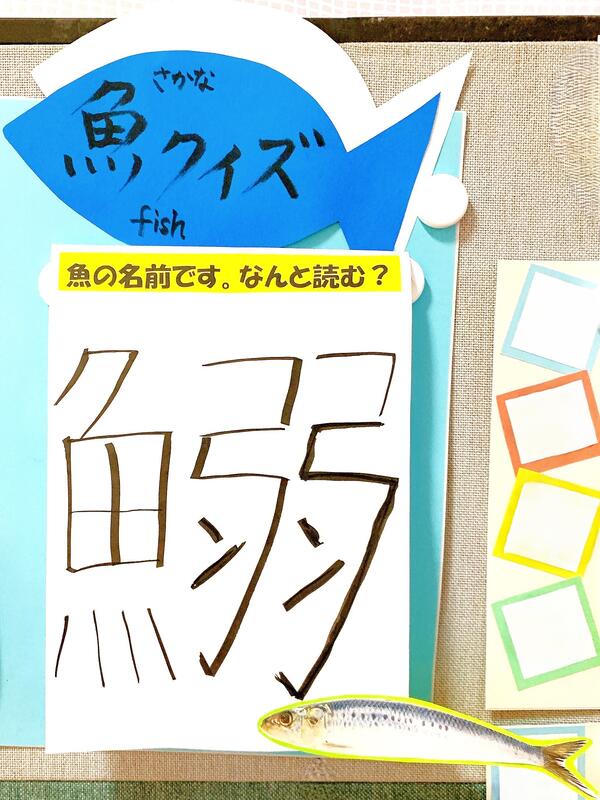 さかな
魚クイズ
fish
魚の名前です。なんと読む？
鰯